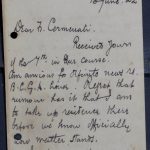 15 June. 22
Dear F. Cermenati.
Received yours
of the 7th in due course.
Am anxious to
news re.
B.C.G.A. Regret that
rumour has it that I am
to take up residence there
before we know officially
how matter stands.